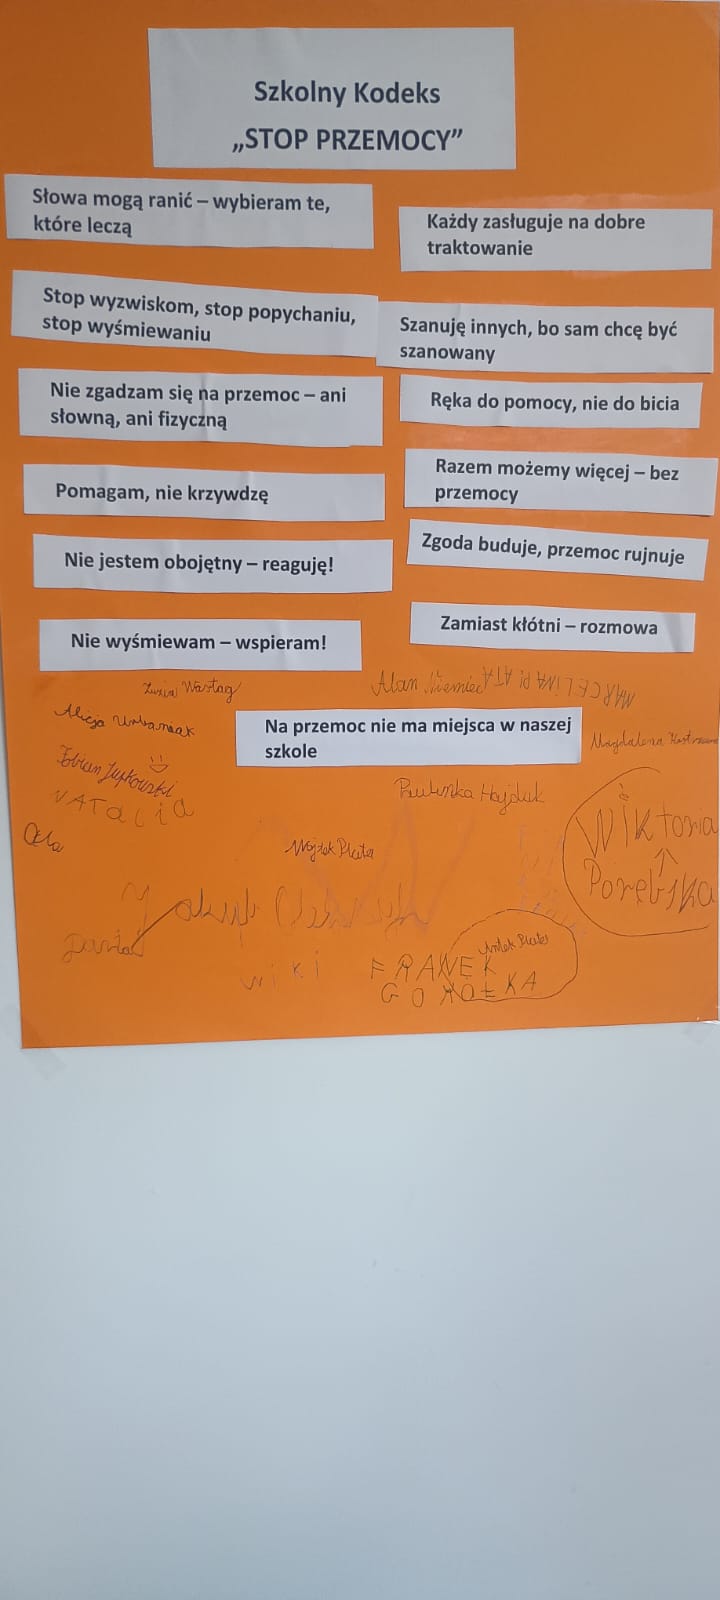 Szkolny Kodeks
„STOP PRZEMOCY”
Słowa mogą ranić – wybieram te,
które leczą
Każdy zasługuje na dobre
traktowanie
Stop wyzwiskom, stop popychaniu,
stop wyśmiewaniu
Szanuję innych, bo sam chcę być
szanowany
Nie zgadzam się na przemoc – ani
słowną, ani fizyczną
Ręka do pomocy, nie do bicia
Pomagam, nie krzywdzę
Razem możemy więcej – bez
przemocy
Nie jestem obojętny – reaguję!
Zgoda buduje, przemoc rujnuje
Nie wyśmiewam – wspieram!
Zamiast kłótni – rozmowa
Zuzia Wastag
Alan Niemiec
MARCELINA PI ATA
Alicja Urbaniak
Na przemoc nie ma miejsca w naszej
szkole
Magdalena
Fabian
NATALIA
Paulinka Hajduk
Wiktoria
Porębska
Ola
Wojtek Plata
Jakub
Daria
wiki
Antek Plata
FRANEK
GOROŁKA